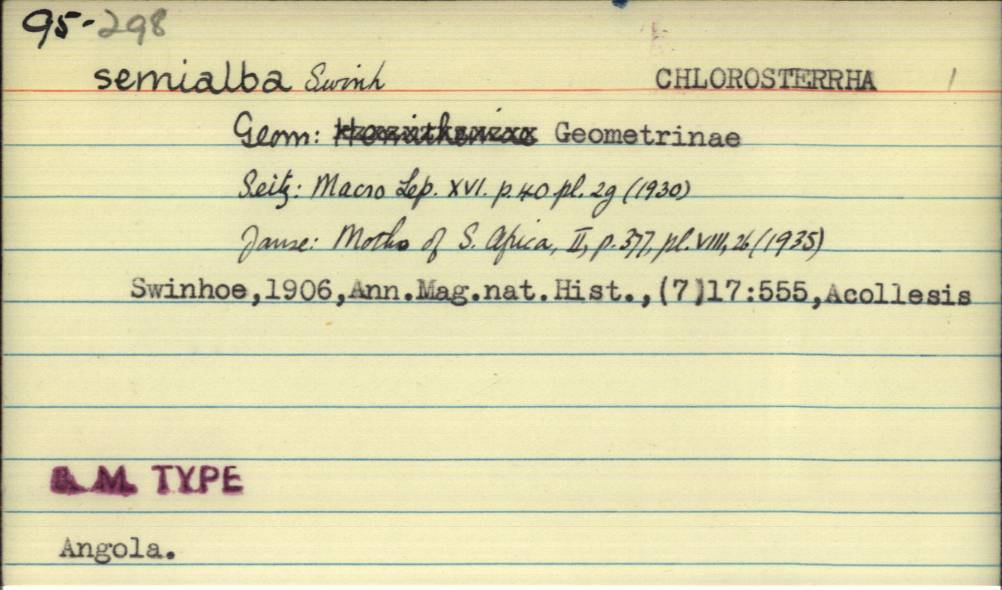 95-298
semialba Swinh CHLOROSTERRHA 1
Geom: Geometrinae
Seitz: Macro Lep. XVI. p. 40 pl. 2g (1930)
Janse: Moths of S. Africa, II, p. 377, pl. VIII, 26 (1935)
Swinhoe,1906,Ann.Mag.nat.Hist.,(7)17:555,Acollesis
B.M. TYPE
Angola.